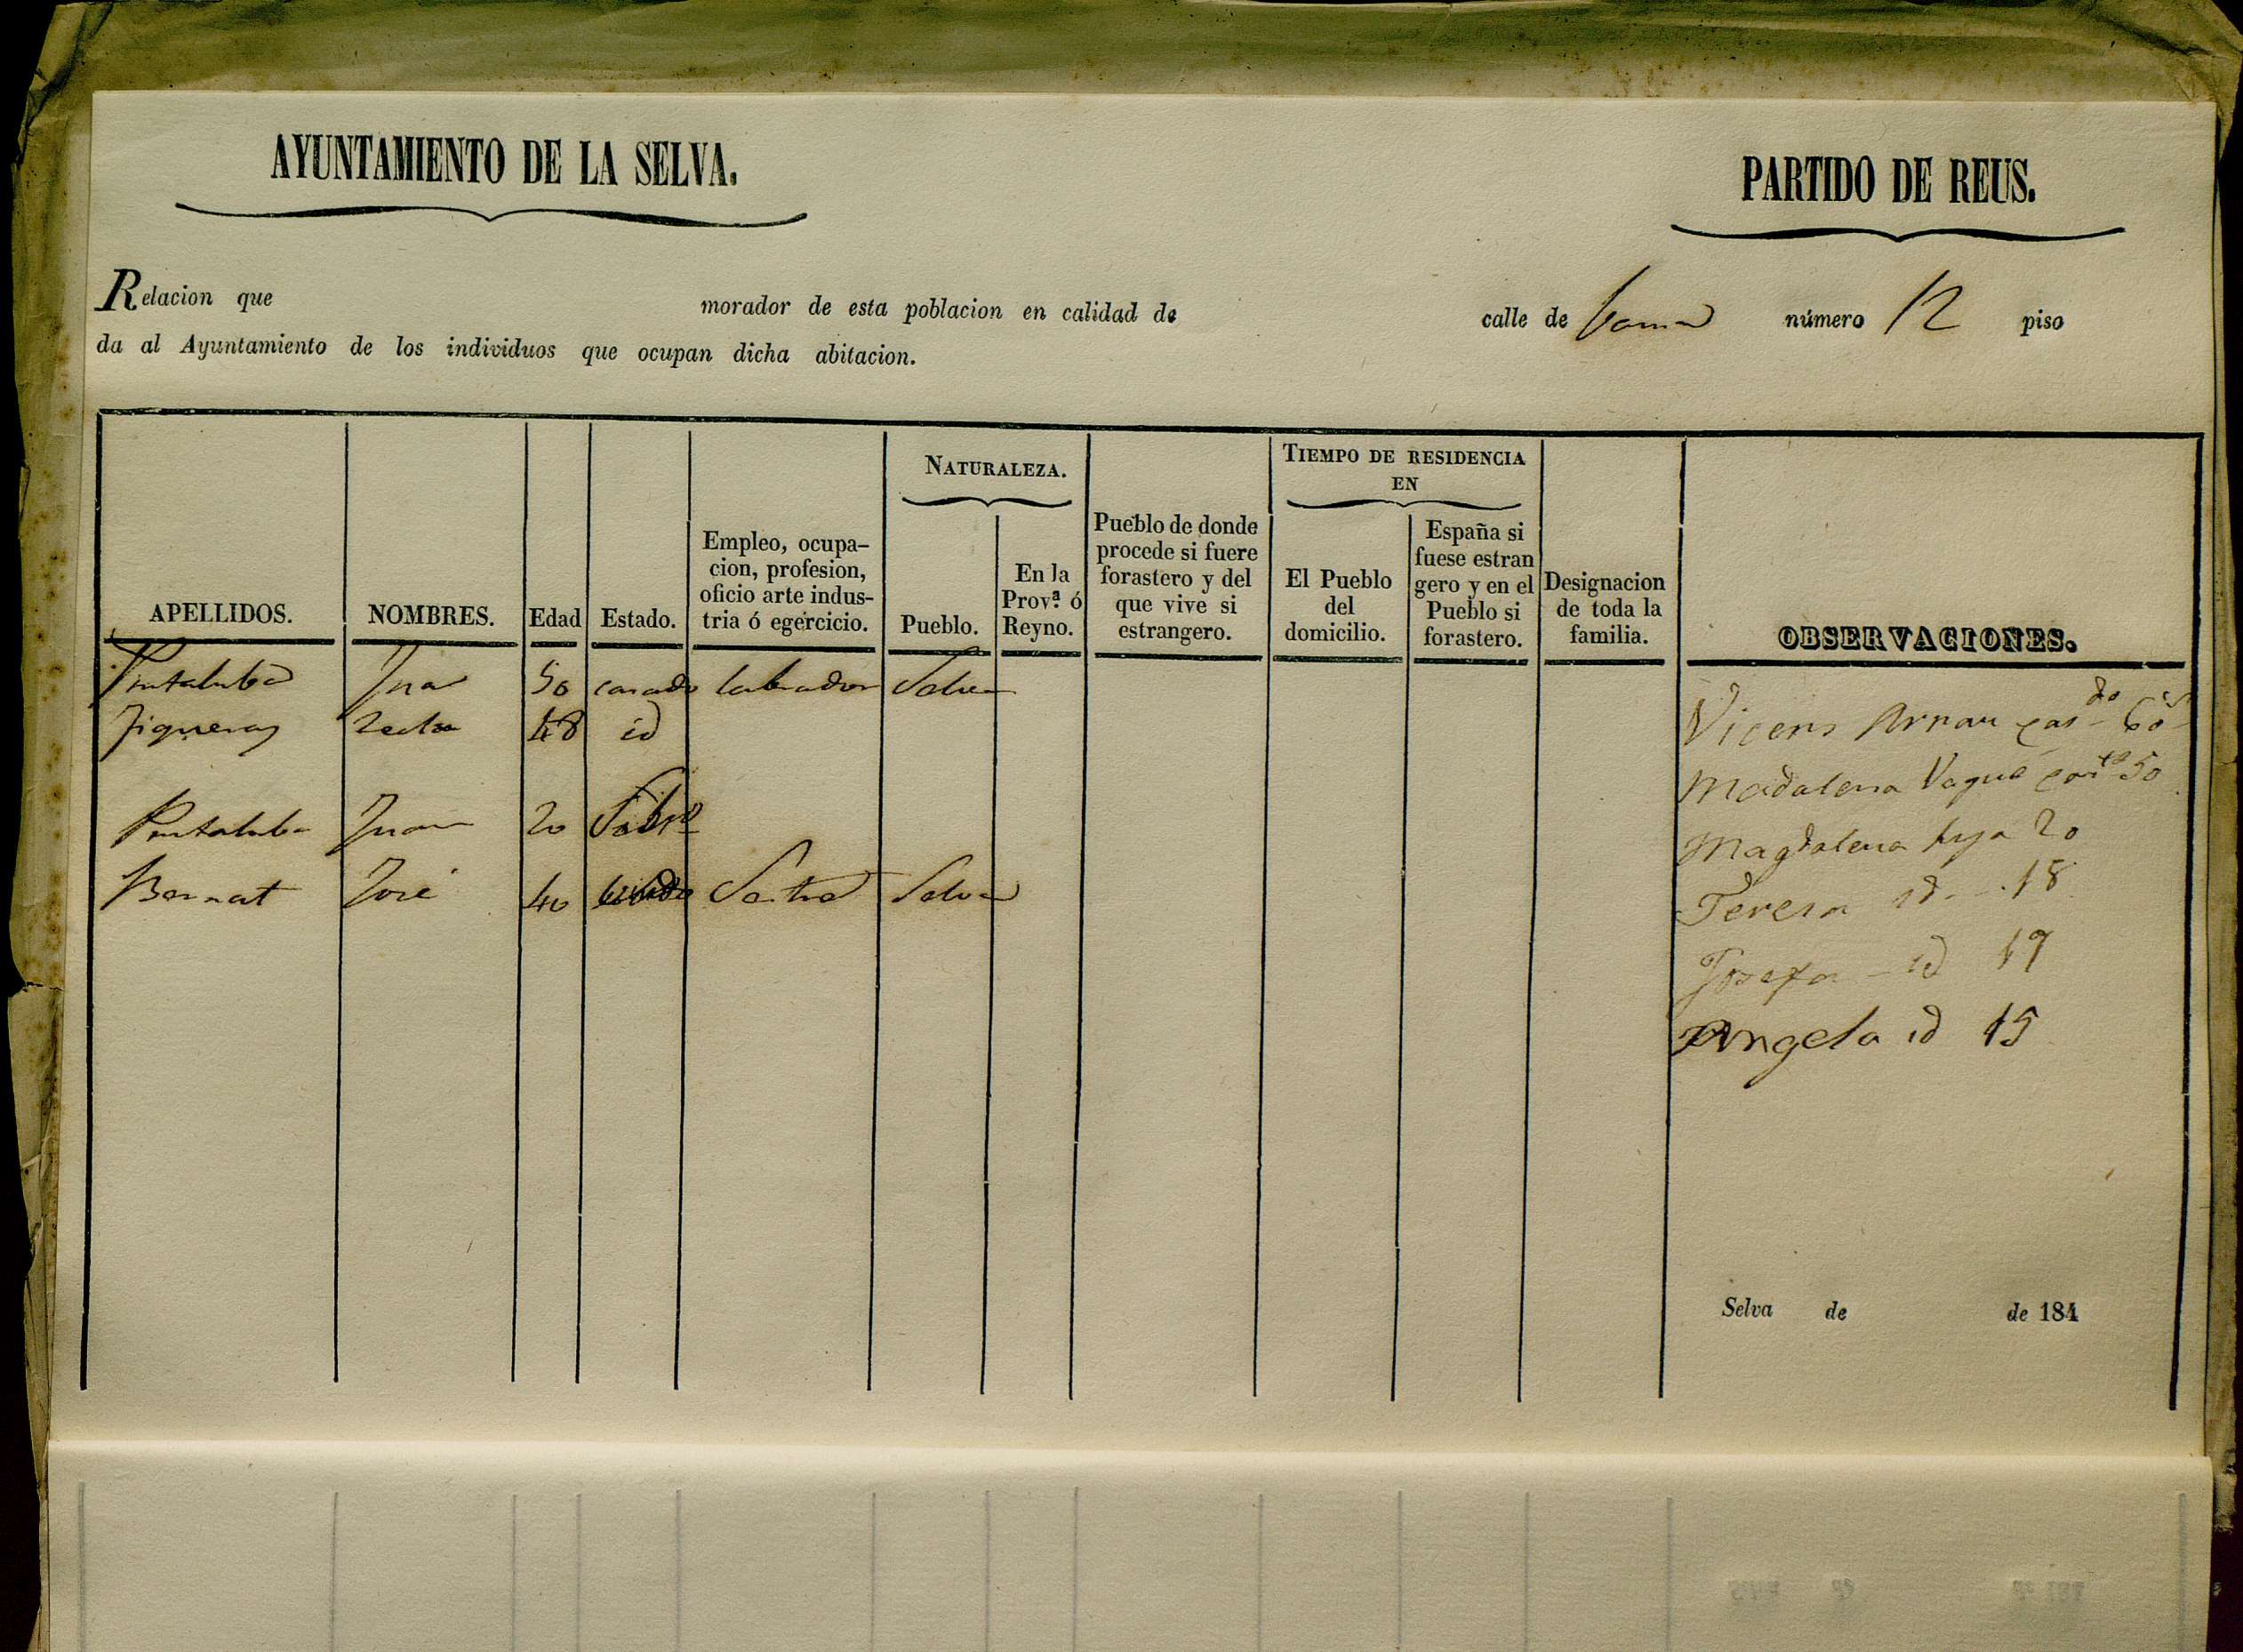 AYUNTAMIENTO DE LA SELVA.
PARTIDO DE REUS.
Relacion que morador de esta poblacion en calidad de calle de número 12 piso
da al Ayuntamiento de los individuos que ocupan dicha abitacion.
APELLIDOS.
NOMBRES.
Edad
Estado.
Empleo, ocupa-
cion, profesion,
oficio arte indus-
tria ó egercicio.
NATURALEZA.
Pueblo.
En la
Provª. ó
Reyno.
Pueblo de donde
procede si fuere
forastero y del
que vive si
estrangero.
TIEMPO DE RESIDENCIA
EN
El Pueblo
del
domicilio.
España si
fuese estran
gero y en el
Pueblo si
forastero.
Designacion
de toda la
familia.
OBSERVACIONES.
50 casado labrador Selva
Figueras Tecla 48 id
Juan 20
Bernat José 40 Sastre Selva
Vicens Arnau cas do 60
Madalena Vagué 50
Magdalena hija 20
Teresa id - 18
Josefa - id 17
Angela id 15
Selva de de 184